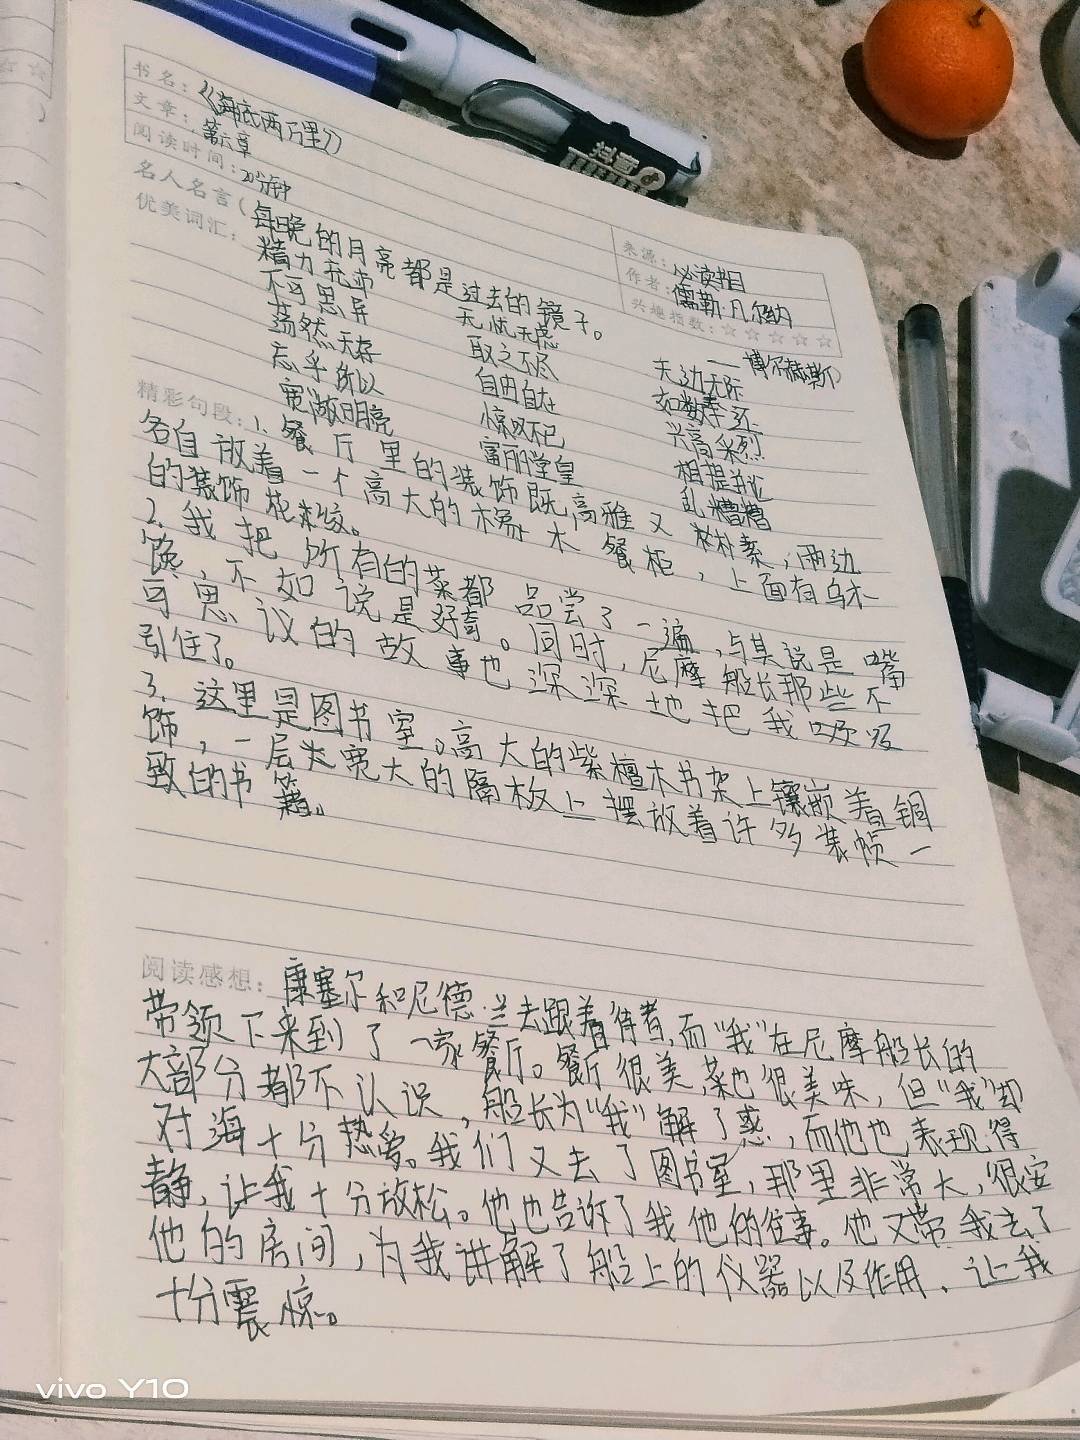 书名：《海底两万里》
文章：第六章
阅读时间：20分钟
来源：必读书目
作者：儒勒·凡尔纳
兴趣指数：☆☆☆☆☆
名人名言（每晚的月亮都是过去的镜子。
——博尔赫斯）
优美词汇：精力充沛 无忧无虑 无边无际
不可思异 取之不尽 如数奉还
荡然无存 自由自在 兴高采烈
忘乎所以 惊叹不已 相提并论
宽敞明亮 富丽堂皇 乱糟糟
精彩句段：1、餐厅里的装饰既高雅又朴素，两边
各自放着一个高大的橡木餐柜，上面有乌木
的装饰花纹。
2、我把所有的菜都品尝了一遍，与其说是嘴
馋，不如说是好奇。同时，尼摩船长那些不
可思议的故事也深深地把我吸
引住了。
3、这里是图书室。高大的紫檀木书架上镶嵌着铜
饰，一层层宽大的隔板上摆放着许多装帧一
致的书籍。
阅读感想：康塞尔和尼德·兰去跟着侍者，而“我”在尼摩船长的
带领下来到了一家餐厅。餐厅很美，菜也很美味，但“我”却
大部分都不认识，船长为“我”解了惑，而他也表现得
对海十分热爱。我们又去了图书室，那里非常大，很安
静，让我十分放松。他也告诉了我他的往事。他又带我去了
他的房间，为我讲解了船上的仪器以及作用，让我
十分震惊。
抖音
vivo Y10